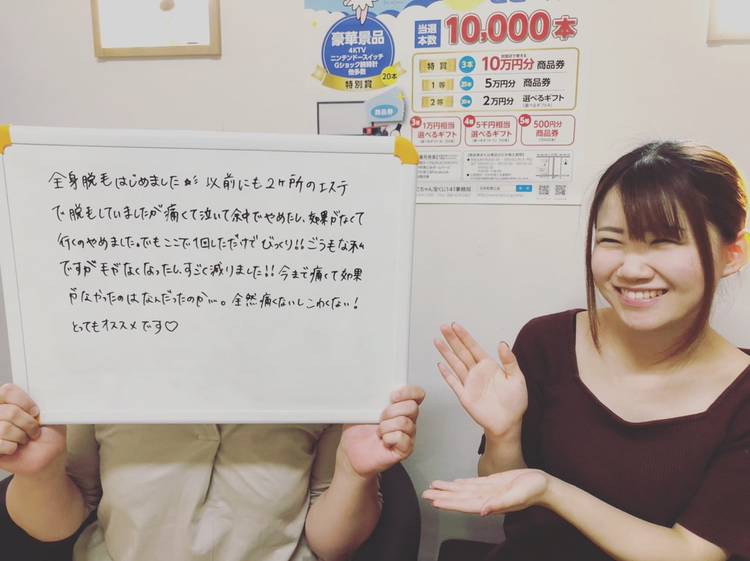 豪華景品
4KTV
ニンテンドースイッチ
Gショック腕時計
他多数
特別賞
20本
当選本数 10,000本
特賞 3本 10万円分 商品券
1等 5万円分 商品券
2等 2万円分 選べるギフト
3等 1万円相当 選べるギフト
4等 5千円相当 選べるギフト
5等 500円分 商品券
商品券
全身脱毛はじめました☆ 以前にも2ヶ所のエステ
で脱毛していましたが痛くて泣いて途中でやめたし、効果がなくて
行くのやめました。でもここで1回しただけでびっくり!!ごうもうな私
ですが毛がなくなったし、すごく減りました!!今まで痛くて効果
がなかったのはなんだったのか…。全然痛くないしこわくない!
とってもオススメです♡